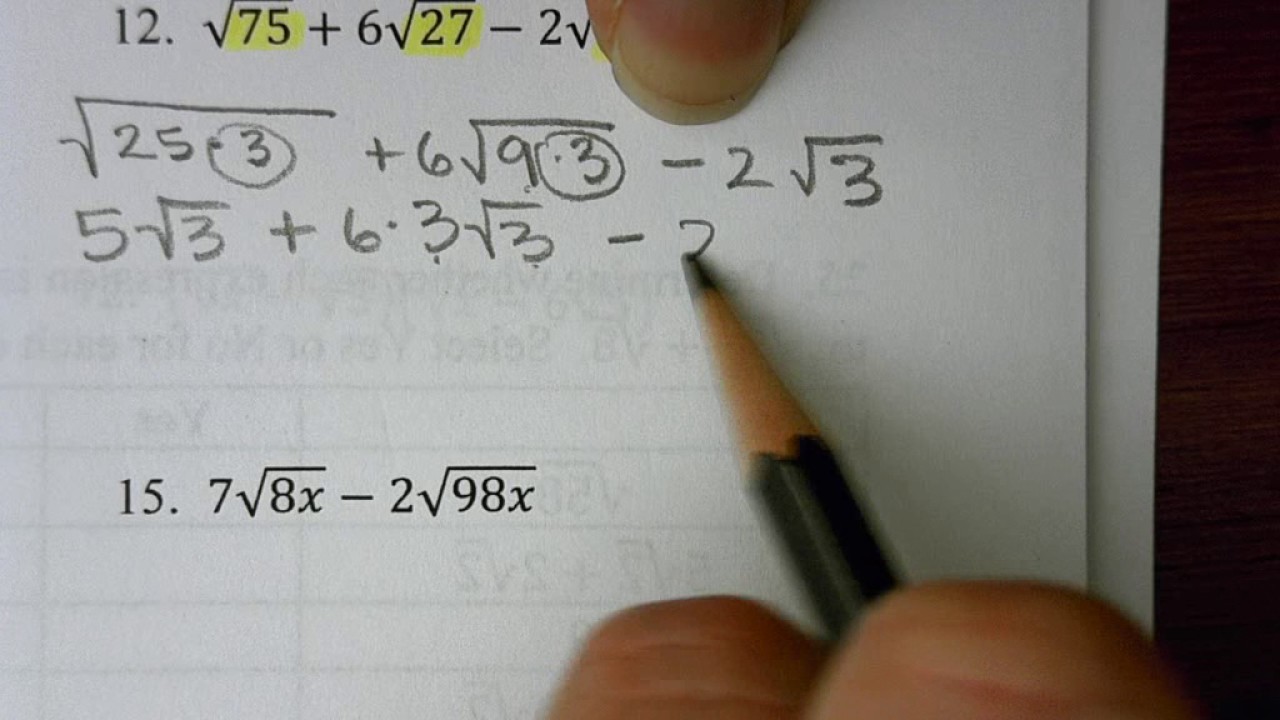 12. √75 + 6√27 − 2√
√25·3 + 6√9·3 − 2√3
5√3 + 6·3√3 − 2
15. 7√8x − 2√98x